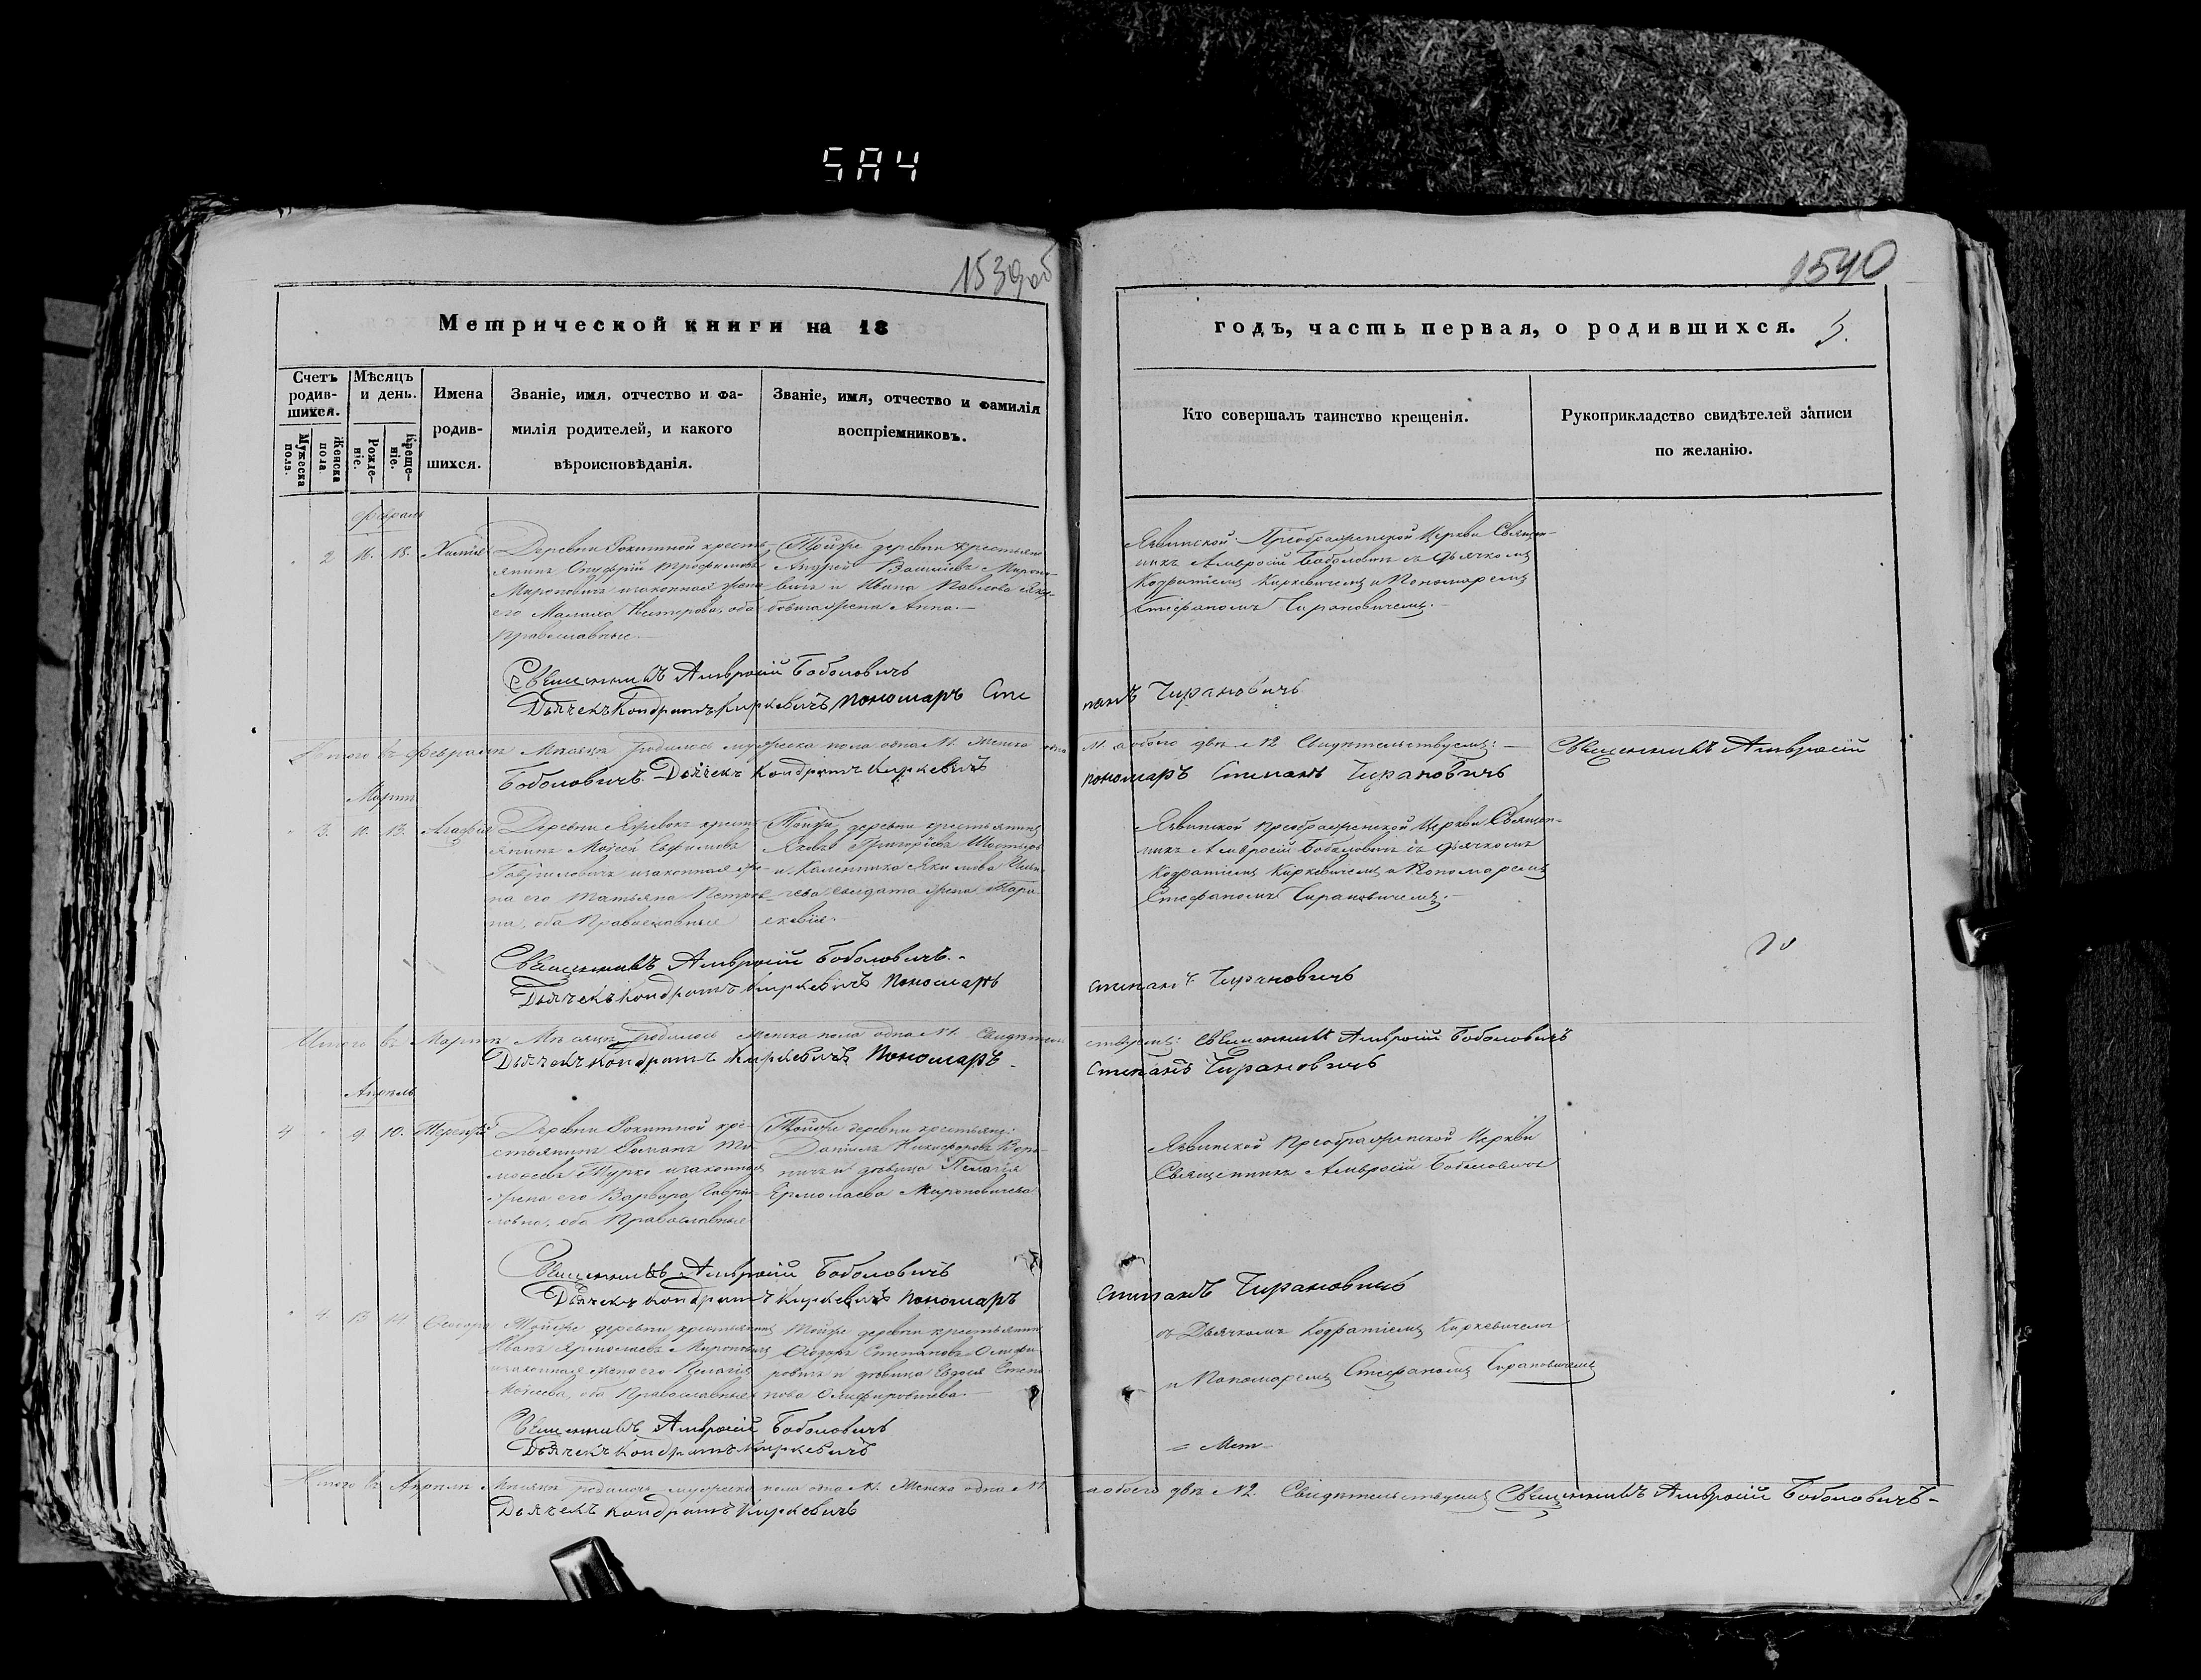 5A4
1539об
1540
Метрической книги на 18
годъ, часть первая, о родившихся.
5.
Счетъ родив-шихся.
Мѣсяцъ и день.
Мужеска пола.
Женска пола
Рожде-ніе.
Креще-ніе.
Имена
родив-
шихся.
Званіе, имя, отчество и фа-
милія родителей, и какого
вѣроисповѣданія.
Званіе, имя, отчество и фамилія
воспріемниковъ.
Кто совершалъ таинство крещенія.
Рукоприкладство свидѣтелей записи
по желанію.
Февраль
2 18.
Деревни Рокитной кресть-
янинъ Онуфрій Трофимовъ
Мироновичъ и законная жена
его Малана Нестерова, оба
православные.
Тойже деревни крестьян
Андрей Мироно-
вичъ и Ивана Павлова
жена Анна.
Преображенской Церкви Священ-
никъ Амвросій Боболовичъ съ Дьячкомъ
Кодратіемъ Киркевичемъ и Пономаремъ
Стефаномъ Чирановичемъ.
Священникъ Амвросій Боболовичъ
Дьячекъ Кондратъ Киркевичъ пономаръ Сте
панъ Чирановичъ
Итого въ Февралѣ Мѣсяцѣ родилось мужеска пола одна №1. Женска одна
№1. а обоего двѣ №2 Свидѣтельствуемъ:
Священникъ Амвросій
Боболовичъ Дьячекъ Кондратъ Киркевичъ
пономаръ Степанъ Чирановичъ
Мартъ
3. 10. 13. Агафія
Деревни крест
янинъ Моѵсей Евфимовъ
Гавриловичъ и законная же-
на его Татьяна Петро-
на, оба Православные
Тойже деревни крестьянинъ
Яковъ Григорьевъ
и Калинника Якимова
жена Пара-
скевія
Преображенской Церкви Священ-
никъ Амвросій Боболовичъ съ Дьячкомъ
Кодратіемъ Киркевичемъ и Пономаремъ
Стефаномъ Чирановичемъ.
Священникъ Амвросій Боболовичъ.
Дьячекъ Кондратъ Киркевичъ пономаръ
степанъ Чирановичъ
Итого въ Мартѣ Мѣсяцѣ родилось женска пола одна №1. Свидѣтель
ствуемъ: Священникъ Амвросій Боболовичъ
Дьячекъ Кондратъ Киркевичъ пономаръ
степанъ Чирановичъ
Апрѣль
4 9. 10. Терентій
Деревни Рокитной кре-
стьянинъ Романъ Ти-
моѳеевъ Турко и законная
жена его Варвара Гаври-
ловна, оба Православные
Тойже деревни крестьяне:
Даніилъ Никифоровъ
и дѣвица Пелагія
Ермолаева Мироновичева
Преображенской Церкви
Священникъ Амвросій Боболовичъ
Священникъ Амвросій Боболовичъ
Дьячекъ Кондратъ Киркевичъ пономаръ
степанъ Чирановичъ
4 13 14
Тойже деревни крестьянинъ
Иванъ Ермолаевъ Мироновичъ
и законная жена его Пелагія
Моисеева, оба Православные
Тойже деревни крестьянинъ
Ѳеодоръ Степановъ
и дѣвица Евдокія Степа
нова
съ Дьячкомъ Кодратіемъ Киркевичемъ
и Пономаремъ Стефаномъ Чирановичемъ
Священникъ Амвросій Боболовичъ
Дьячекъ Кондратъ Киркевичъ
Итого въ Апрѣлѣ Мѣсяцѣ родилось мужеска пола одна №1. Женска одна №1.
а обоего двѣ №2. Свидѣтельствуемъ Священникъ Амвросій Боболовичъ
Дьячекъ Кондратъ Киркевичъ